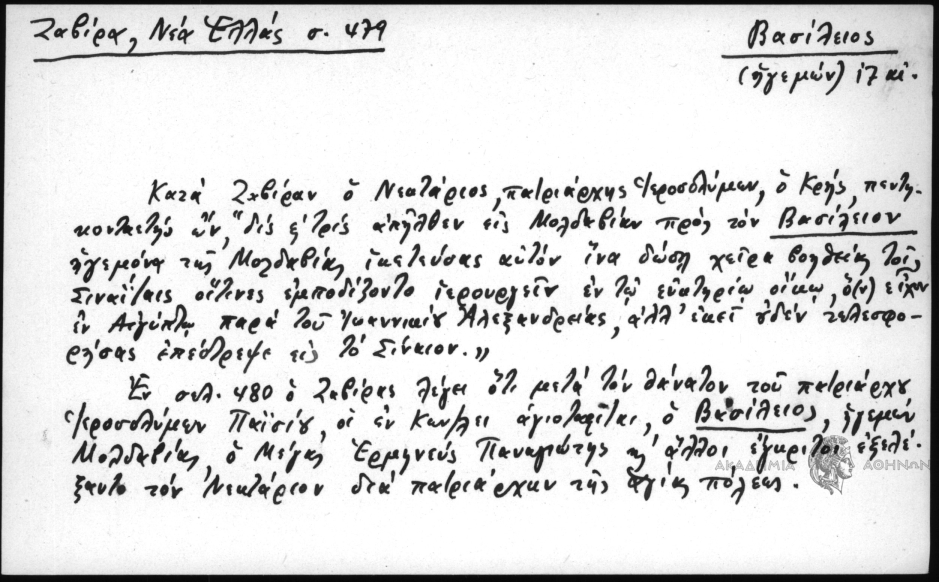 Ζαβίρα, Νέα Ἑλλάς σ. 479
Βασίλειος
(ἡγεμών) ιζ αἰ.
Κατά Ζαβίραν ὁ Νεκτάριος, πατριάρχης Ἱεροσολύμων, ὁ Κρής, πεντη-
κονταετής ὤν, "δίς ἤ τρίς ἀπῆλθεν εἰς Μολδαβίαν πρός τόν Βασίλειον
ἡγεμόνα τῆς Μολδαβίας ἱκετεύσας αὐτόν ἵνα δώσῃ χεῖρα βοηθείας τοῖς
Σιναΐταις οἵτινες ἐμποδίζοντο ἱερουργεῖν ἐν τῷ εὐκτηρίῳ οἴκῳ, ὅ(ν) εἶχον
ἐν Αἰγύπτῳ παρά τοῦ Ἰωαννικίου Ἀλεξανδρείας, ἀλλ' ἐκεῖ οὐδέν τελεσφο-
ρήσας ἐπέστρεψε εἰς τό Σίναιον."
Ἐν σελ. 480 ὁ Ζαβίρας λέγει ὅτι μετά τόν θάνατον τοῦ πατριάρχου
Ἱεροσολύμων Παϊσίου, οἱ ἐν Κων/λει ἁγιοταφῖται, ὁ Βασίλειος, ἡγεμών
Μολδαβίας, ὁ Μέγας Ἑρμηνεύς Παναγιώτης κ ἄλλοι ἔγκριτοι ἐξελέ-
ξαντο τόν Νεκτάριον διά πατριάρχην τῆς ἁγίας πόλεως.
ΑΚΑΔΗΜΙΑ ΑΘΗΝΩΝ